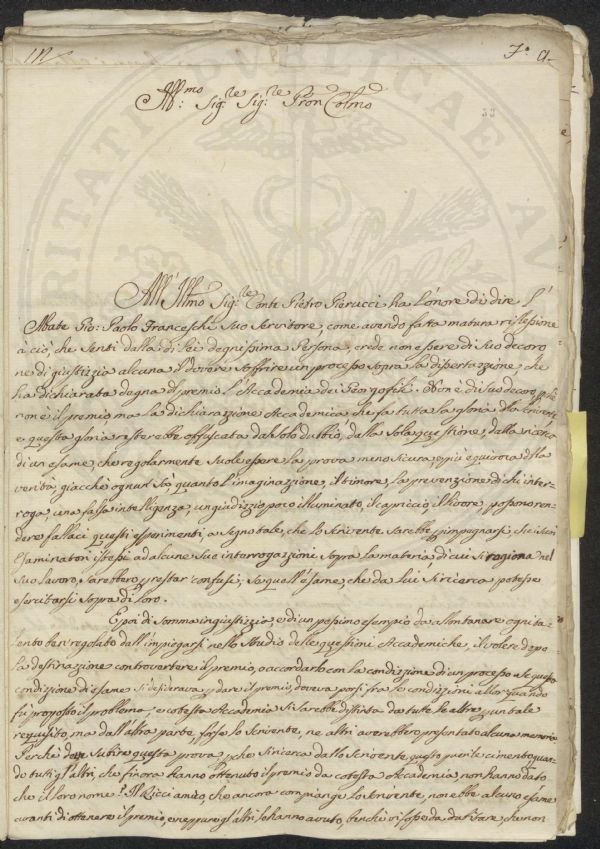 Ill.mo Sig.re Sig.re Pron Colmo
33
All' Ill.mo Sig.re Conte Pietro Pierucci ha l'onore di dire l'
Abate Gio: Paolo Franceschi Suo Servitore, come avendo fatta matura riflessione
à ciò, che Sentì dalla di Lei degnissima Persona, crede non essere di Suo decoro
nè di giustizia alcuna il dovere Soffrire un processo Sopra la dissertazione, che
ha dichiarata degna di premio l'Accademia dei Georgofili. Non è di Suo decoro, perchè
non è il premio, ma la dichiarazione Accademica, che fa tutta la gloria dello Scrivente
e questa gloria resterebbe offuscata dal Solo dubbio, dalla Sola questione, dalla ricerca
di un esame, che regolarmente Suole essere la prova meno Sicura, e più equivoca della
verità, giacchè ognun Sa, quanto l'imaginazione, il timore, la prevenzione di chi inter-
roga, una falsa intelligenza, un giudizio poco illuminato, il capriccio, il livore, possono ren-
dere fallaci questi esperimenti, a Segno tale, che lo Scrivente Sarebbe p impegnarsi, che i Sui
Esaminatori istessi ad alcune Sue interrogazioni Sopra la materia di cui Si ragiona nel
Suo lavoro, Sarebbero p restar confusi, Se quell'esame, che da lui Si ricerca potesse
esercitarsi Sopra di loro.
E poi di Somma ingiustizia e di un pessimo esempio da allontanare ogni ta-
lento ben regolato dall'impiegarsi nello Studio delle questioni Accademiche, il volere dopo
la destinazione controvertere il premio, o accordarlo con la condizione di un processo. Se questa
condizione di esame Si desiderava p dare il premio, doveva porsi fra le condizioni allor quando
fu proposto il problema, e cotesta Accademia Si Sarebbe distinta da tutte le altre p un tale
requisito, ma dall'altra parte, forse lo Scrivente, nè altri averebbero presentato alcuna memoria
Perchè deve Subire questa prova, p che Si ricerca dallo Scrivente, questo puerile cimento quan-
do tutti gl'altri, che finora hanno ottenuto il premio da cotesta Accademia non hanno dato
che il loro nome? Il Ricci amico, che ancora compiange lo Scrivente non ebbe alcuno esame
avanti di ottenere il premio, e neppure gl'altri lo hanno avuto, benchè vi fosse da dubitare, che non